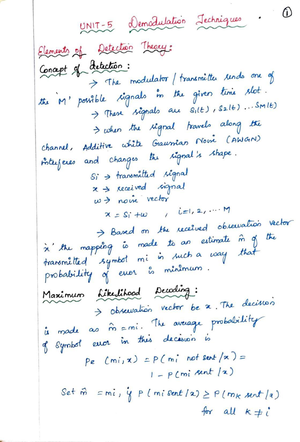 ①
UNIT-5 Demodulation Techniques
Elements of Detection Theory:
Concept of Detection:
→ The modulator/transmitter sends one of
the 'M' possible signals in the given time slot.
→ These signals are S1(t), S2(t) ... SM(t)
→ when the signal travels along the
channel, Additive white Gaussian Noise (AWGN)
interferes and changes the signal's shape.
Si → transmitted signal
x → received signal
w → noise vector
x = Si + w , i=1,2,.... M
→ Based on the received observation vector
'x' the mapping is made to an estimate m̂ of the
transmitted symbol mi in such a way that
probability of error is minimum.
Maximum Likelihood Decoding:
→ observation vector be x. The decision
is made as m̂ = mi. The average probability
of symbol error in this decision is
Pe (mi, x) = P(mi not sent/x) =
1 - P(mi sent/x)
Set m̂ = mi, if P(mi sent/x) ≥ P(mk sent/x)
for all k ≠ i